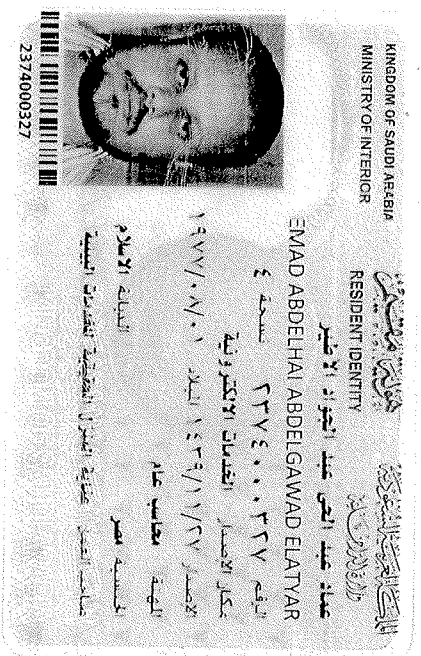 KINGDOM OF SAUDI ARABIA
MINISTRY OF INTERIOR
المملكة العربية السعودية
وزارة الداخلية
هوية مقيم
RESIDENT IDENTITY
عماد عبد الحى عبد الجواد الاطير
EMAD ABDELHAI ABDELGAWAD ELATYAR
الرقم ٢٣٧٤٠٠٠٣٢٧ نسخة ٤
مكان الاصدار الخدمات الالكترونية
الاصدار ١٤٣٩/١١/٢٧ الميلاد ١٩٧٧/٠٨/٠١
المهنة محاسب عام
الجنسية مصر الديانة الاسلام
صاحب العمل
2374000327